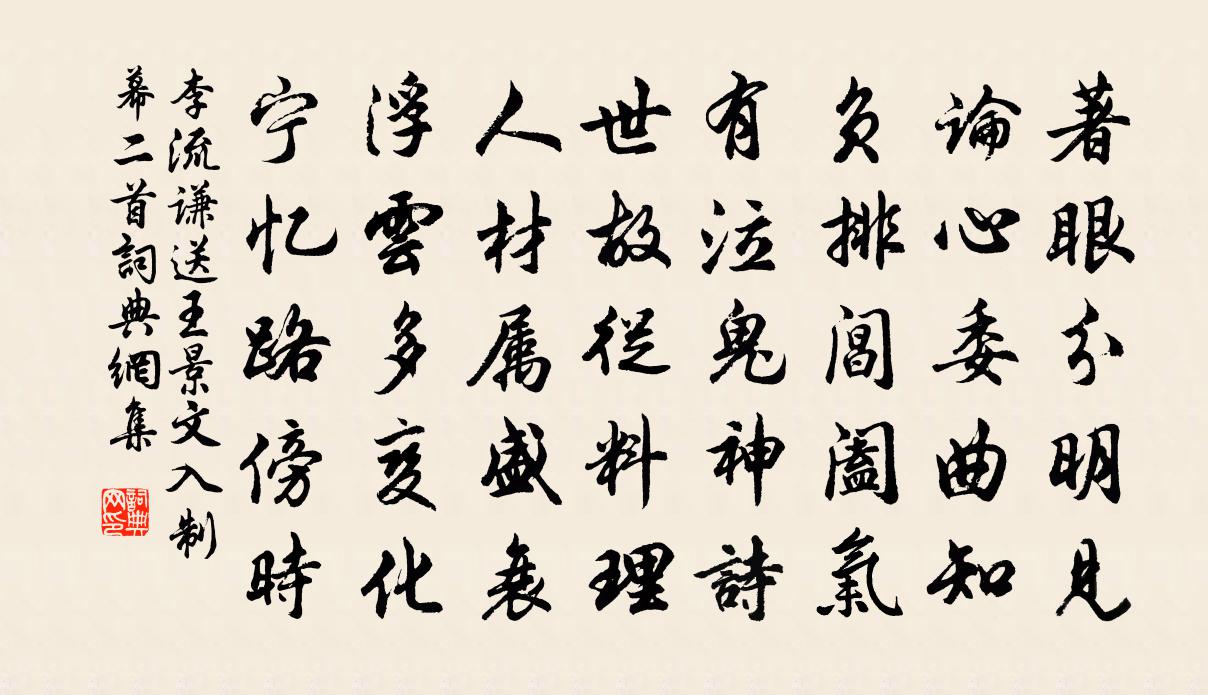 著眼分明見
論心委曲知
負排閶闔氣
有泣鬼神詩
世故從料理
人材属盛衰
浮雲多变化
宁忆路傍時
李流谦送王景文入制
幕二首詞典網集
詞典
网印